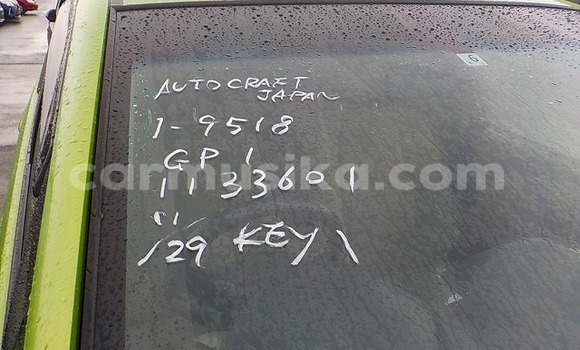 5
AUTOCRAFT
JAPAN
1-9518
GP1
1133601
11
/29 KEY 1
carmusika.com